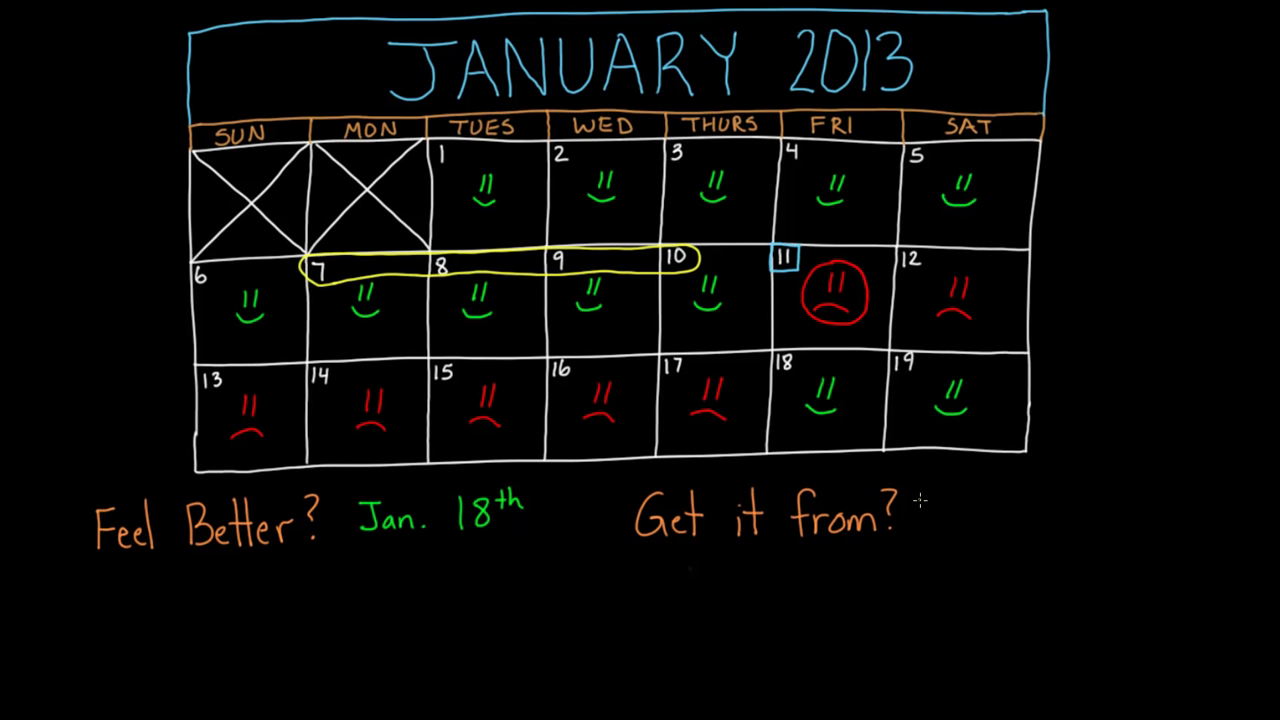 JANUARY 2013
SUN MON TUES WED THURS FRI SAT
1 2 3 4 5
6 7 8 9 10 11 12
13 14 15 16 17 18 19
Feel Better? Jan. 18th Get it from?